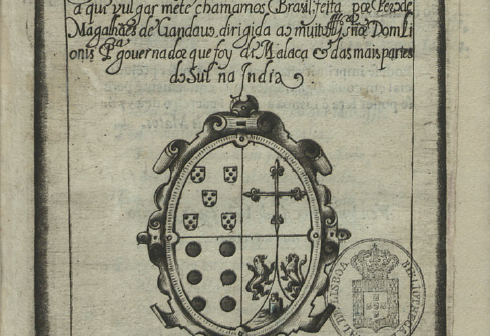 a que vulgarmẽte chamamos Brasil: feita por Pero de
Magalhães de Gandauo, dirigida ao muito Illᵉ sñor Dom Lionis Pª gouernador que foy de Malaca & das mais partes
do Sul na India